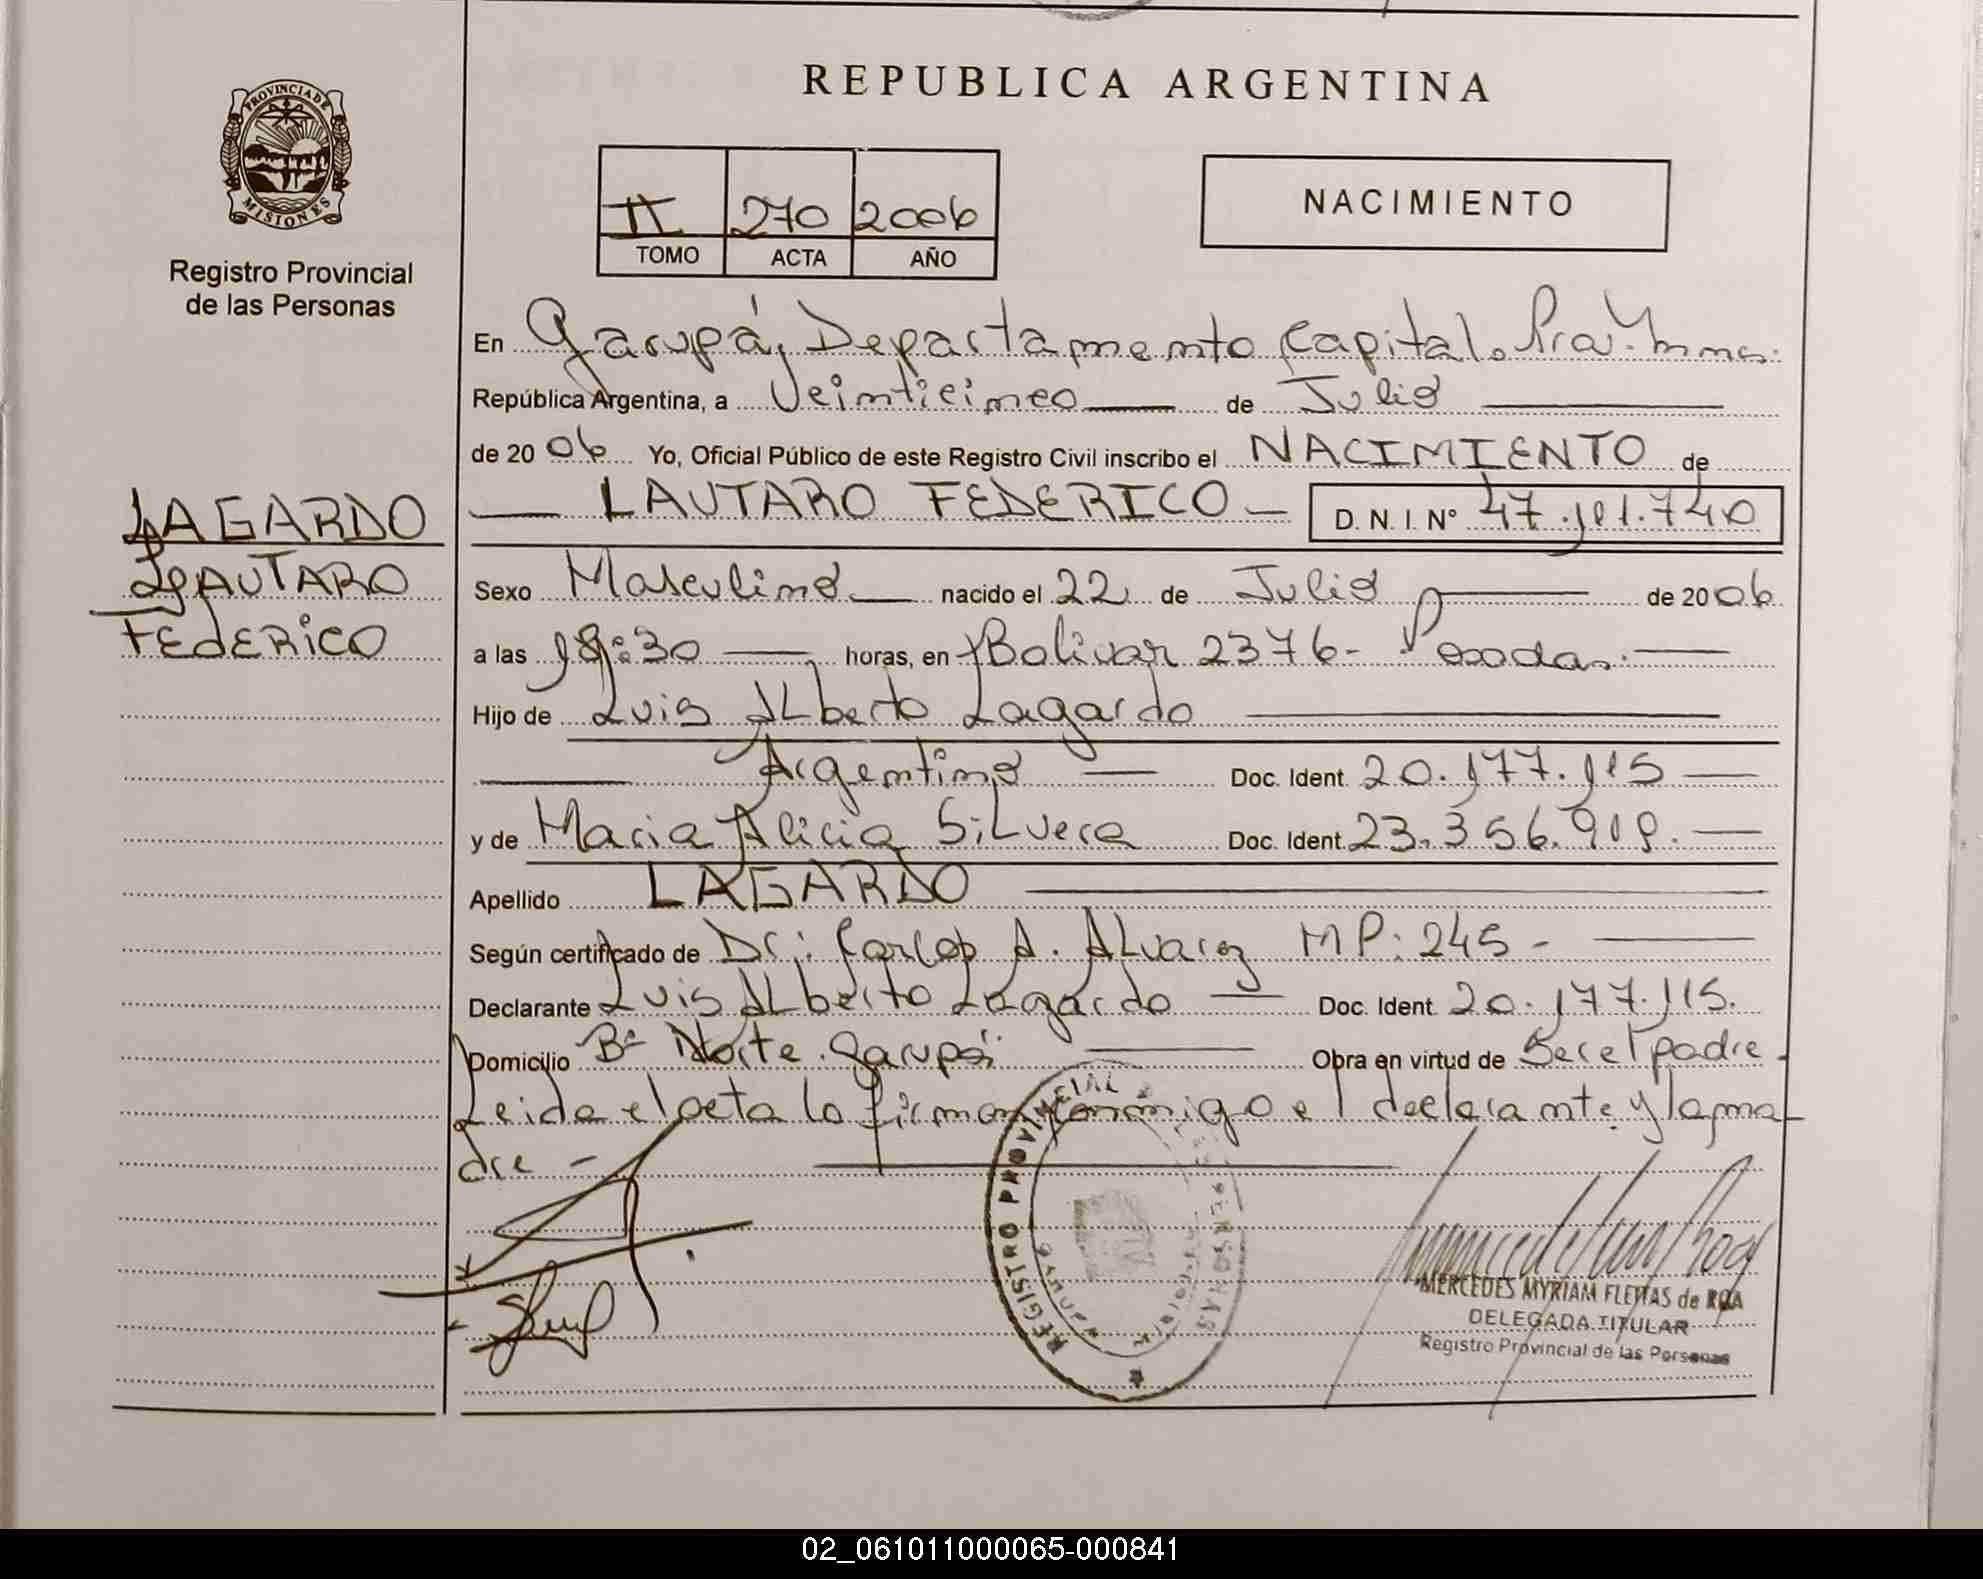 REPUBLICA ARGENTINA
PROVINCIA DE
MISIONES
Registro Provincial
de las Personas
II 270 2006
TOMO ACTA AÑO
NACIMIENTO
En Garupá, Departamento Capital. Prov. Mnes.
República Argentina, a Veinticinco de Julio
de 2006 Yo, Oficial Público de este Registro Civil inscribo el NACIMIENTO de
LAUTARO FEDERICO D.N.I. Nº 47.101.740
LAGARDO
LAUTARO
FEDERICO
Sexo Masculino nacido el 22 de Julio de 2006
a las 18:30 horas, en Bolivar 2376- Posadas.
Hijo de Luis ALberto Lagardo
Argentino Doc. Ident. 20.177.115
y de Maria Alicia SiLvera Doc. Ident. 23.356.919.
Apellido LAGARDO
Según certificado de Dr: Carlos A. ALvarez MP: 245-
Declarante Luis ALberto Lagardo Doc. Ident. 20.177.115.
Domicilio Bº Norte. Garupá Obra en virtud de Ser el padre.
Leida el acta la firman conmigo el declarante y la ma-
dre -
REGISTRO PROVINCIAL PERSONAS
GARUPA
MERCEDES MYRIAM FLEITAS de ROA
DELEGADA TITULAR
Registro Provincial de las Personas
02_061011000065-000841